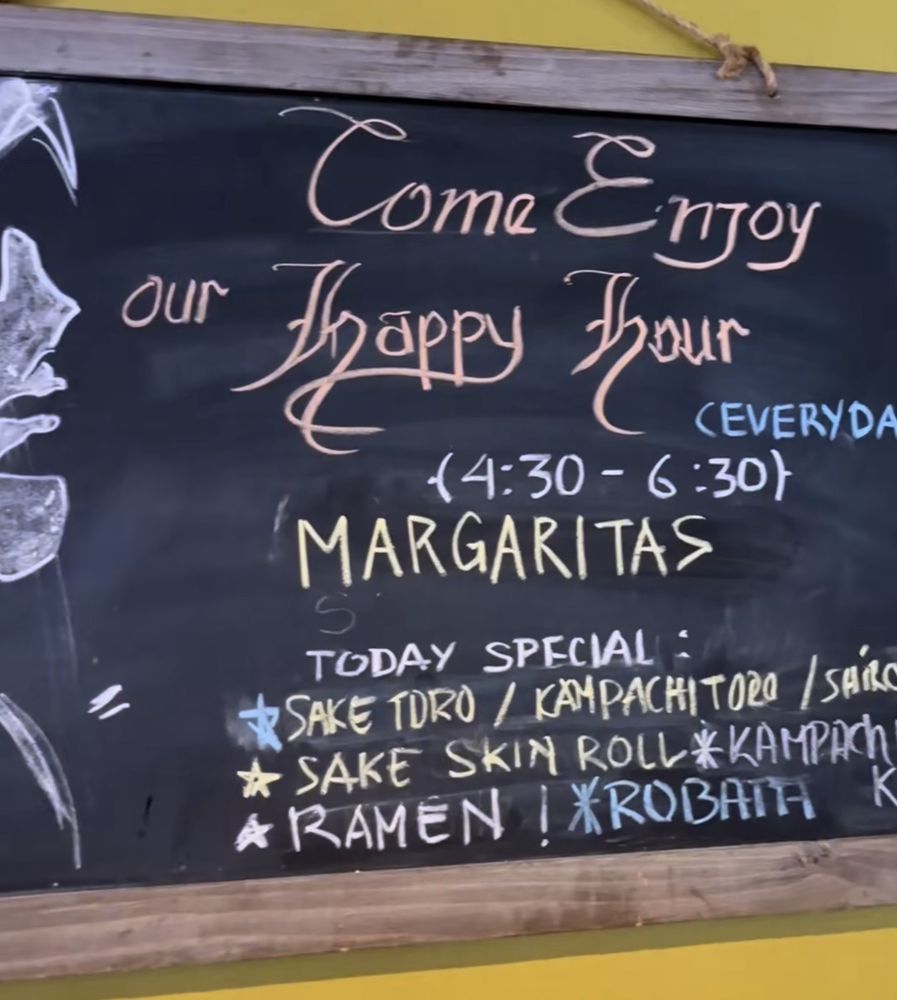 Come Enjoy
our Happy Hour
(EVERYDA
{4:30 - 6:30}
MARGARITAS
S
TODAY SPECIAL :
SAKE TORO / KAMPACHI TORO / SHIRO
SAKE SKIN ROLL *KAMPACHI
RAMEN ! *ROBATA K